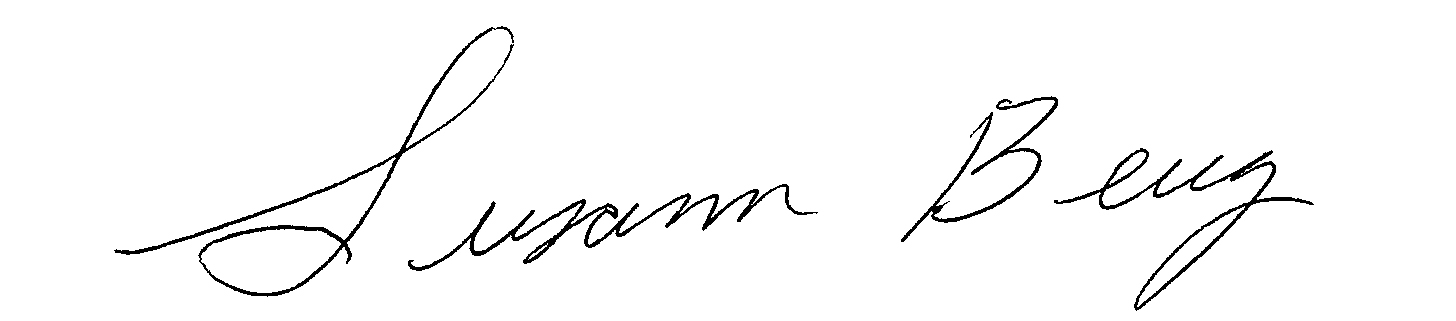 Susann Berg